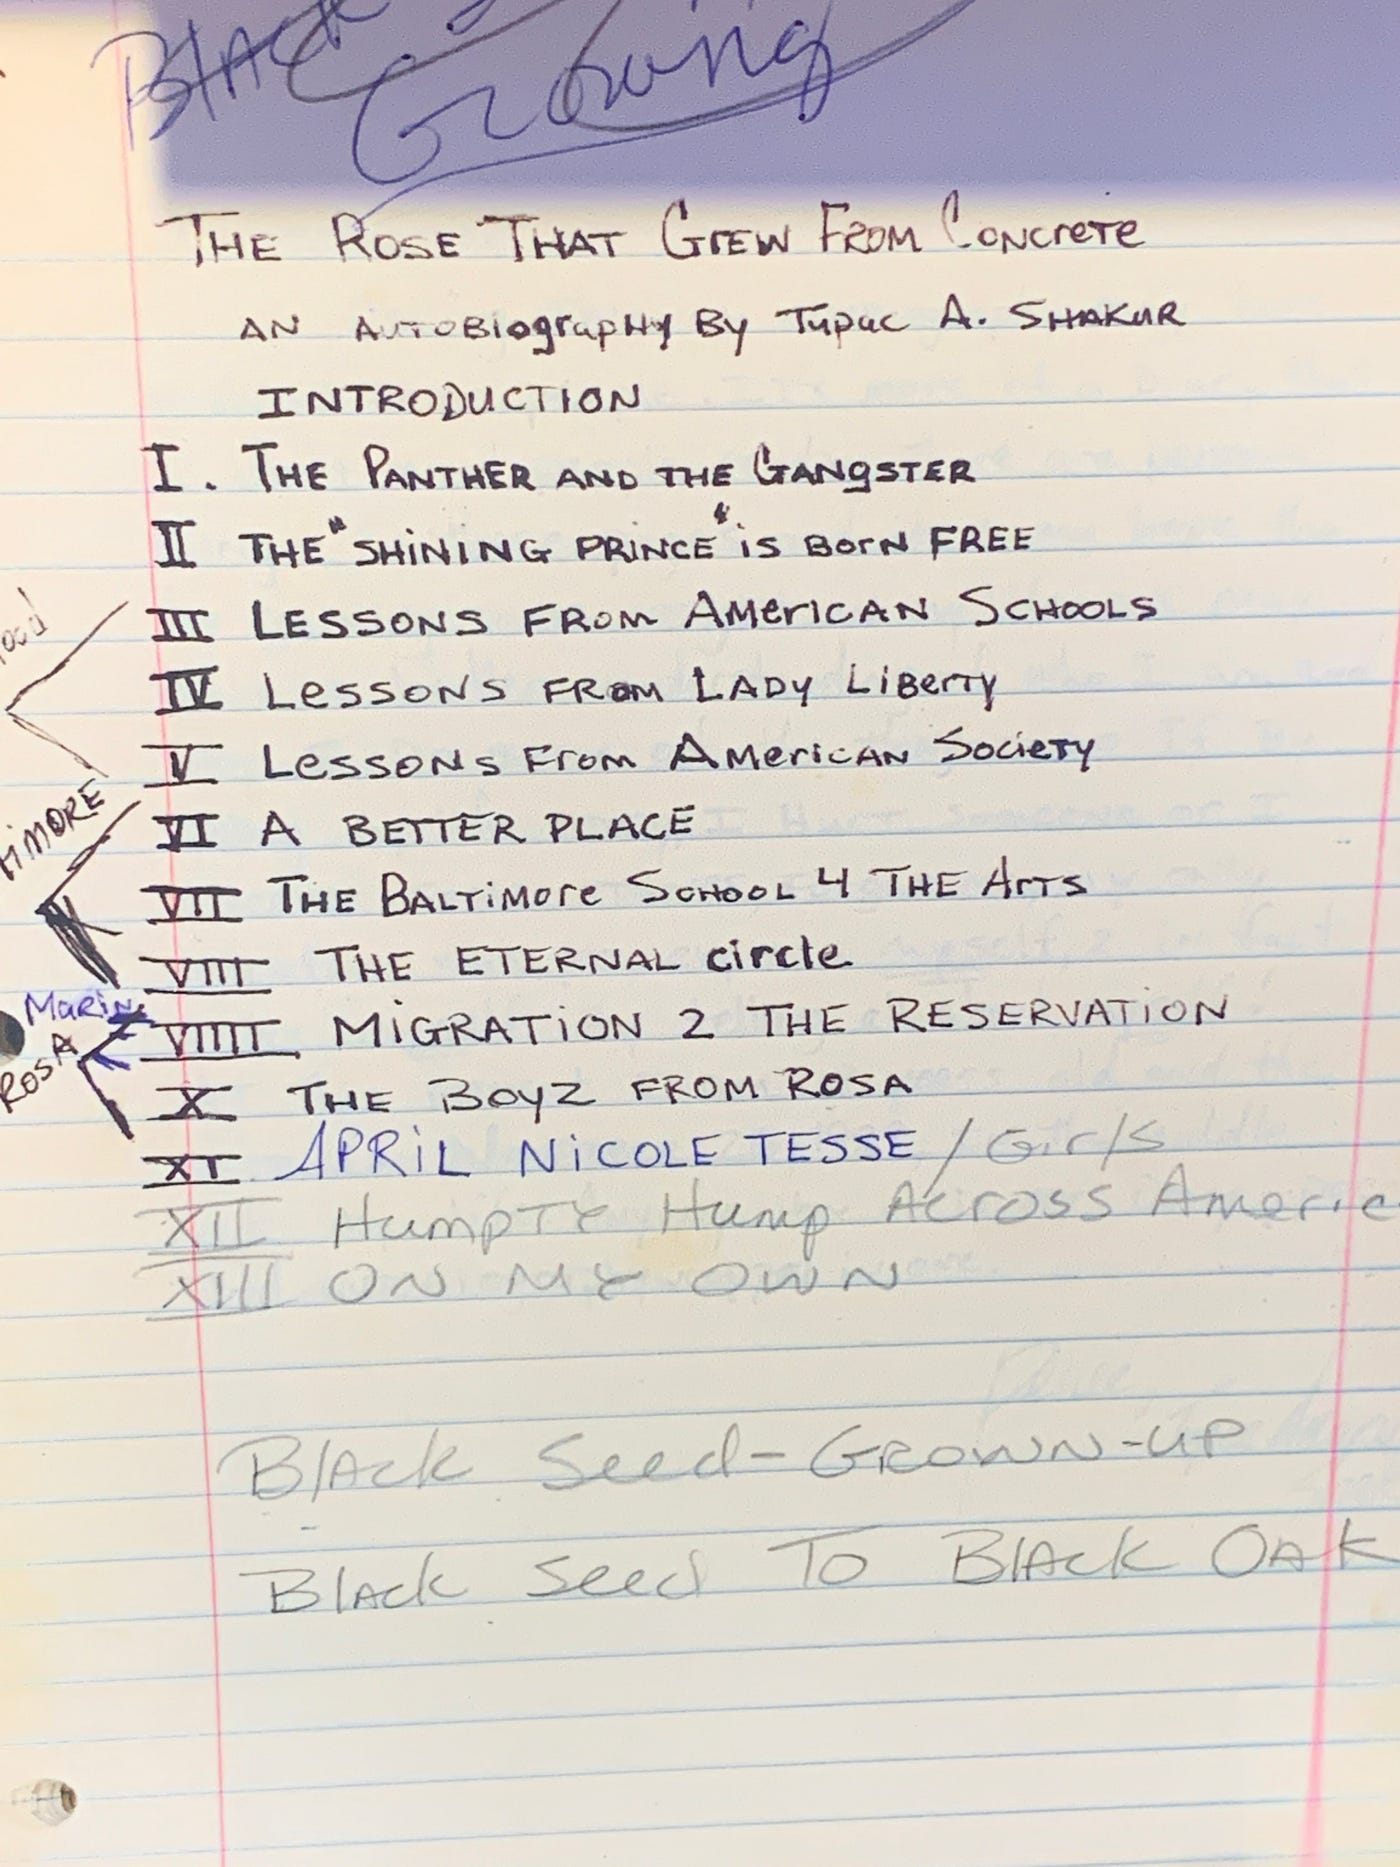 Black
Growing
THE ROSE THAT GREW FROM CONCRETE
AN AUTOBiography By Tupac A. SHAKUR
INTRODUCTION
I. THE PANTHER AND THE GANGSTER
II THE "SHINING PRINCE" iS BORN FREE
III LESSONS FROM AMERICAN SCHOOLS
IV LESSONS FROM LADY LIBERTY
V LESSONS From AMERICAN Society
VI A BETTER PLACE
VII THE BALTIMORE SCHOOL 4 THE ARTS
VIII THE ETERNAL circle
Marin
VIIII MIGRATION 2 THE RESERVATION
ROSA
X THE BOYZ FROM ROSA
XI APRIL NICOLE TESSE / Girls
XII HUMPTY Hump Across Americ
XIII ON MY OWN
Black Seed-GROWN-UP
Black Seed To Black OAK